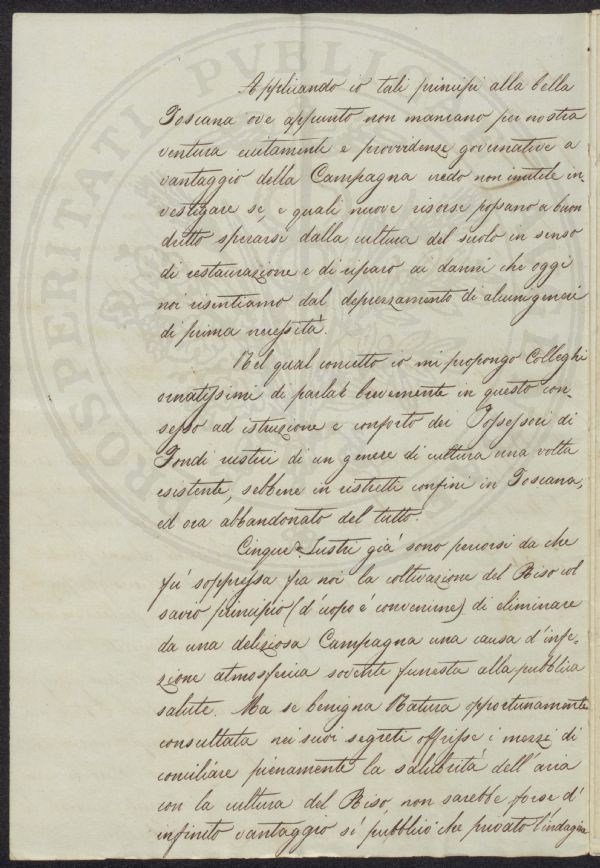 Applicando io tali principj alla bella
Toscana ove appunto non mancano per nostra
ventura eccitamente e provvidenze governative a
vantaggio della Campagna credo non inutile in-
vestigare se, e quali nuove risorse possano a buon
dritto sperarsi dalla cultura del suolo in senso
di restaurazione e di riparo ai danni che oggi
noi risentiamo dal deprezzamento di alcuni generi
di prima necessità.
Nel qual concetto io mi propongo Colleghi
ornatissimi di parlar brevemente in questo con-
sesso ad istruzione e conforto dei Possessori di
Fondi rustici di un genere di cultura una volta
esistente, sebbene in ristretti confini in Toscana,
ed ora abbandonato del tutto.
Cinque Lustri già sono percorsi da che
fù soppressa fra noi la coltivazione del Riso col
savio principio (d'uopo è convenirne) di eliminare
da una deliziosa Campagna una causa d'infe-
zione atmosferica sovente funesta alla pubblica
salute. Ma se benigna Natura opportunamente
consultata nei suoi segreti offrisse i mezzi di
conciliare pienamente la salubrità dell'aria
con la cultura del Riso, non sarebbe forse d'
infinito vantaggio sì pubblico che privato l'indagine
PROSPERITATI PVBLICAE